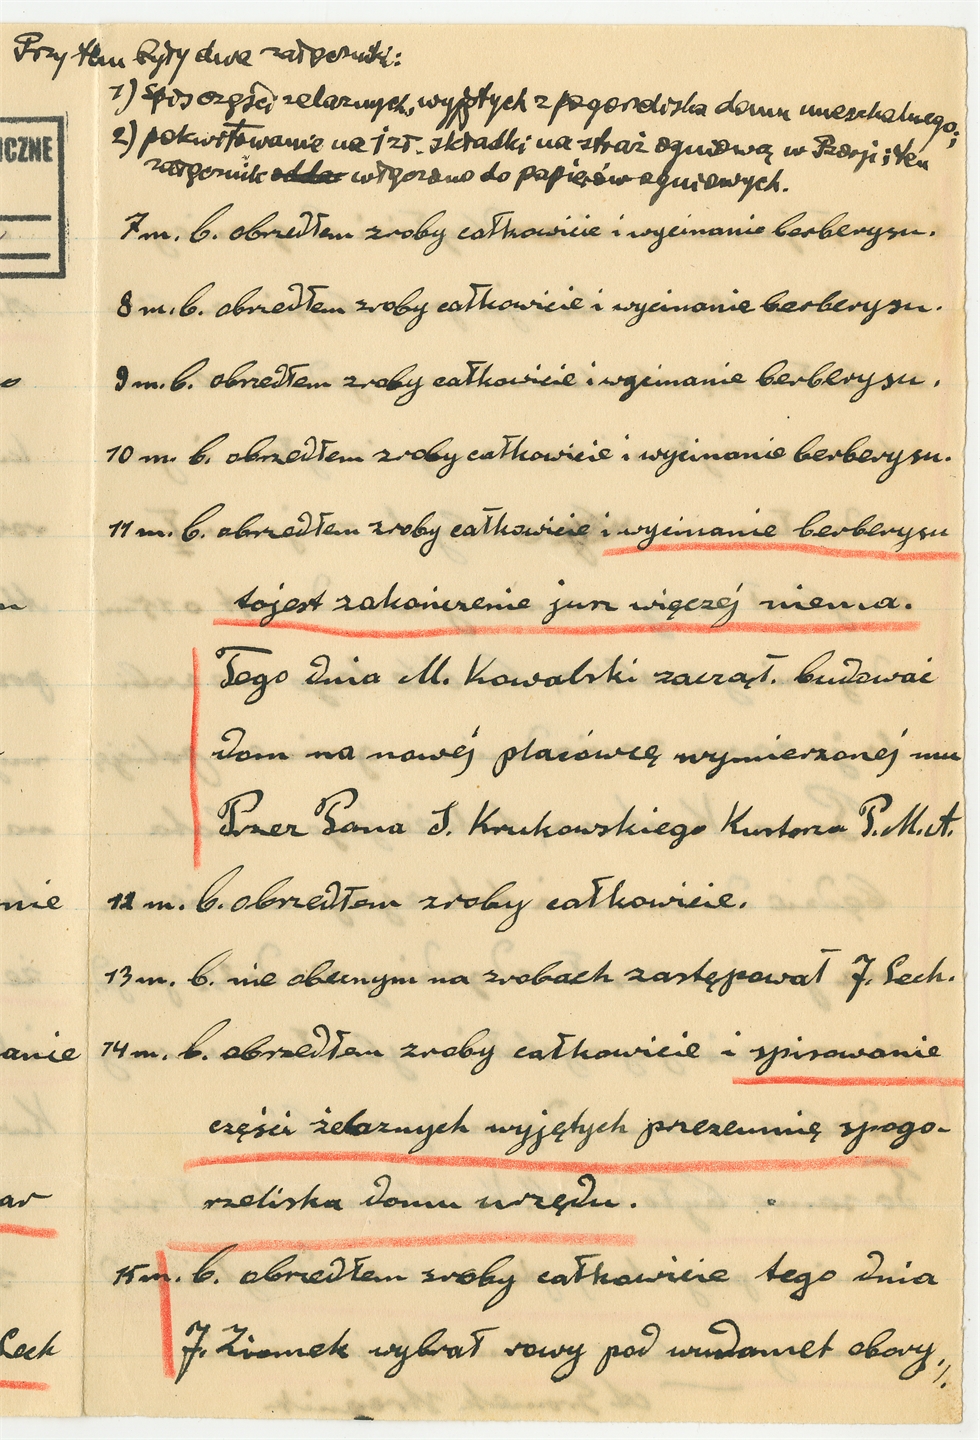 Przy tem były dwa załączniki:
1) spis części żelaznych, wyjętych z pogorzeliska domu mieszkalnego;
2) pokwitowanie na 1 zł. składki na straż ogniową w i ten
załącznik włączono do papierów ogniowych.
ICZNE
7 m. b. obszedłem zroby całkowicie i wycinanie berberysu.
8 m. b. obszedłem zroby całkowicie i wycinanie berberysu.
o
9 m. b. obszedłem zroby całkowicie i wycinanie berberysu.
10 m. b. obszedłem zroby całkowicie i wycinanie berberysu.
11 m. b. obszedłem zroby całkowicie i wycinanie berberysu
tojest zakończenie jurz więczéj niema.
Tego dnia M. Kowalski zaczął. budować
dom na nowéj placówcę wymierzonéj mu
Przez Pana S. Krukowskiego Kustorza P.M.A.
nie
12 m. b. obszedłem zroby całkowicie.
13 m. b. nie obecnym na zrobach zastępował J. Lech.
anie
14 m. b. obszedłem zroby całkowicie i spisowanie
części żelaznych wyjętych przezemnię spogo-
ar
rzeliska domu urzędu.
15 m. b. obszedłem zroby całkowicie tego dnia
Lech
J. Ziomek wybrał rowy pod wudamęt obory,